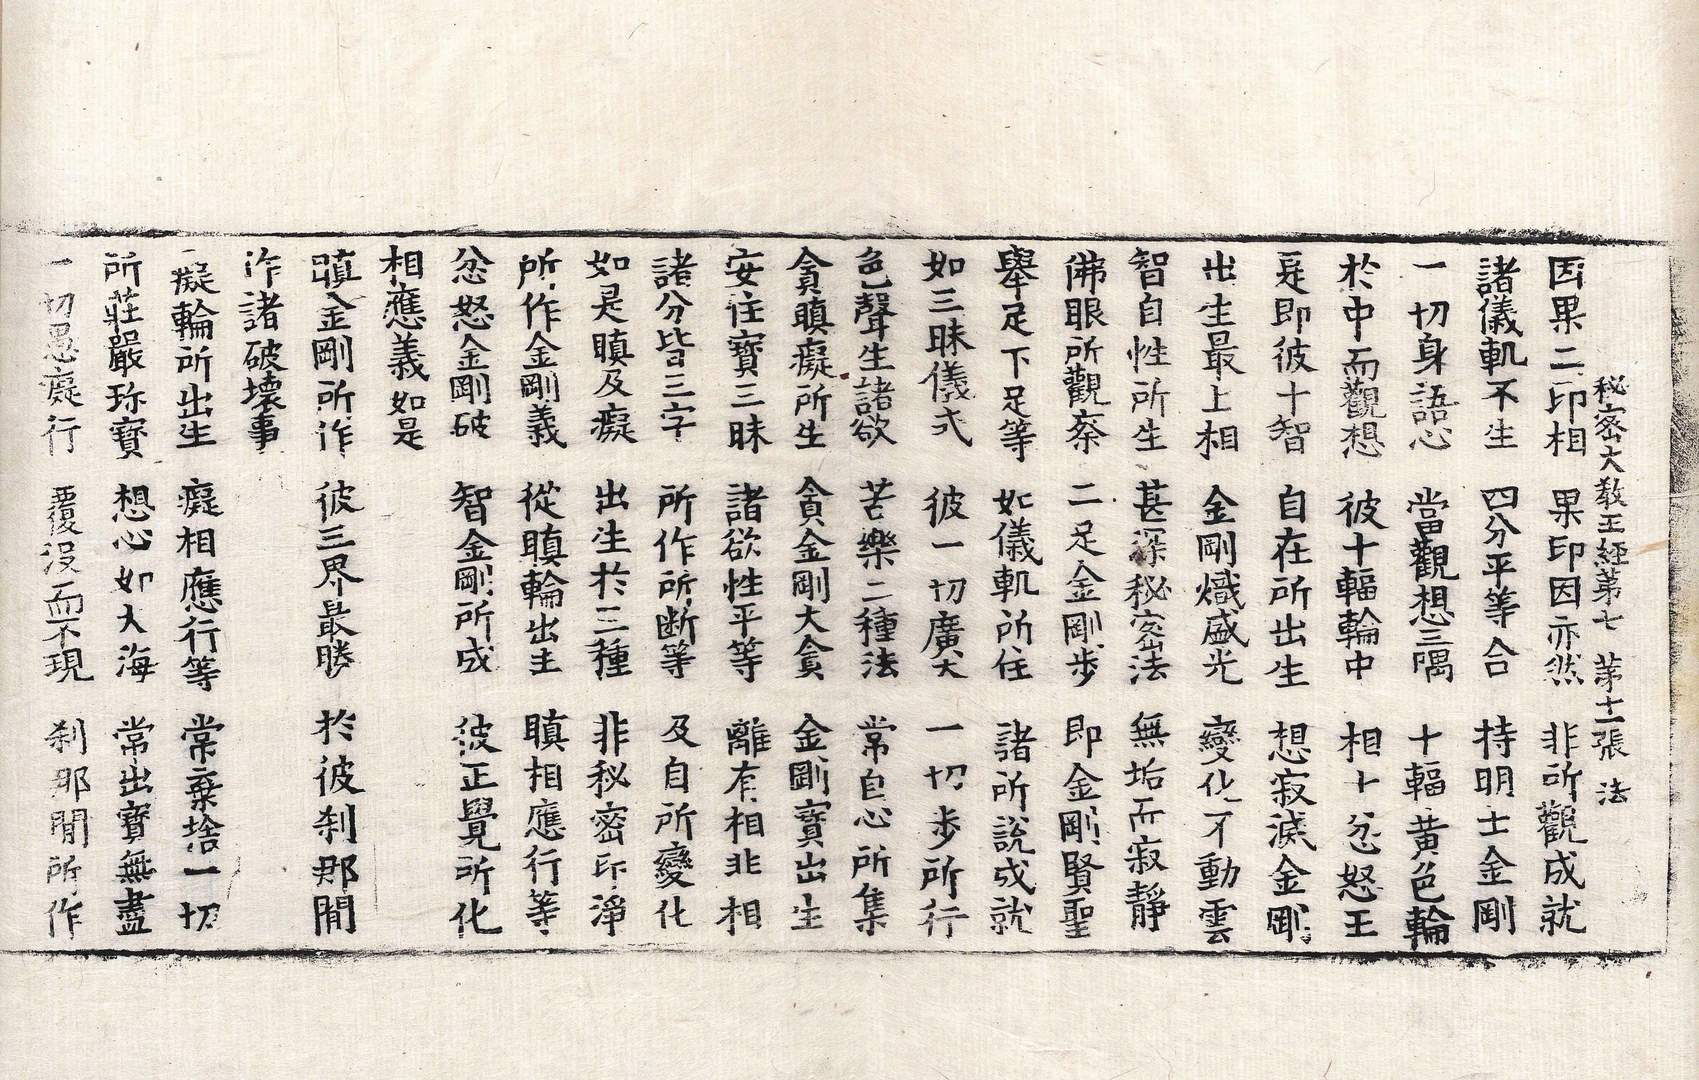 秘密大教王經第七 第十一張 法
因果二印相 果印因亦然 非所觀成就
諸儀軌不生 四分平等合 持明士金剛
一切身語心 當觀想三隅 十輻黃色輪
於中而觀想 彼十輻輪中 相十忿怒王
是即彼十智 自在所出生 想寂滅金剛
出生最上相 金剛熾盛光 變化不動雲
智自性所生 甚深秘密法 無垢而寂靜
佛眼所觀察 二足金剛步 即金剛賢聖
舉足下足等 如儀軌所住 諸所說成就
如三昧儀式 彼一切廣大 一切步所行
色聲生諸欲 苦樂二種法 常自心所集
貪瞋癡所生 貪金剛大貪 金剛寶出生
安住寶三昧 諸欲性平等 離有相非相
諸分皆三字 所作所斷等 及自所變化
如是瞋及癡 出生於三種 非秘密印淨
所作金剛義 從瞋輪出生 瞋相應行等
忿怒金剛破 智金剛所成 彼正覺所化
相應義如是
瞋金剛所作 彼三界最勝 於彼剎那間
作諸破壞事
癡輪所出生 癡相應行等 常棄捨一切
所莊嚴珎寶 想心如大海 常出寶無盡
一切愚癡行 覆沒而不現 剎那間所作